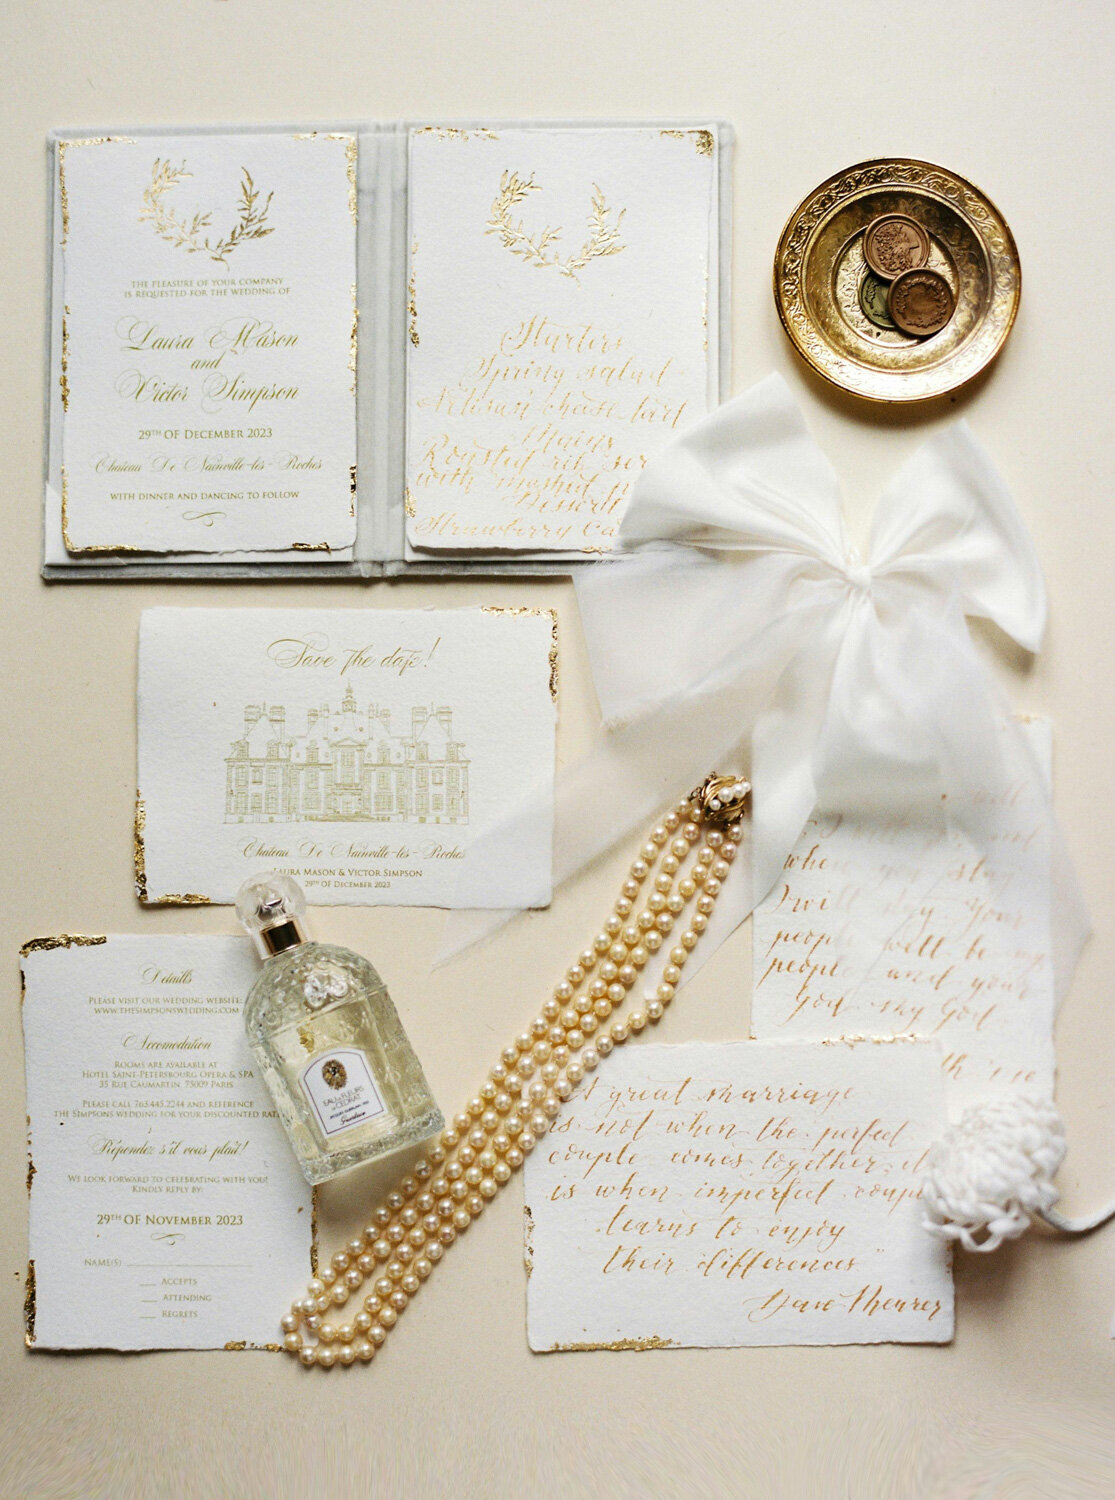 THE PLEASURE OF YOUR COMPANY
IS REQUESTED FOR THE WEDDING OF
Laura Mason
and
Victor Simpson
29TH OF DECEMBER 2023
Château De Nainville-les-Roches
WITH DINNER AND DANCING TO FOLLOW
Starters
Spring salad
Artisan cheese tart
Mains
Roasted rib
with mashed
Dessert
Strawberry
Save the date!
Château De Nainville-les-Roches
LAURA MASON & VICTOR SIMPSON
29TH OF DECEMBER 2023
Details
PLEASE VISIT OUR WEDDING WEBSITE:
WWW.THESIMPSONSWEDDING.COM
Accomodation
ROOMS ARE AVAILABLE AT
HOTEL SAINT-PETERSBOURG OPERA & SPA
35 RUE CAUMARTIN, 75009 PARIS
PLEASE CALL 763.445.2244 AND REFERENCE
THE SIMPSONS WEDDING FOR YOUR DISCOUNTED
Répondez s'il vous plaît!
WE LOOK FORWARD TO CELEBRATING WITH YOU!
KINDLY REPLY BY:
29TH OF NOVEMBER 2023
NAME(S)
ACCEPTS
ATTENDING
REGRETS
EAU DE FLEURS
DE CEDRAT
Guerlain
will
when you stay
I will stay Your
people will be my
people and your
God my God
great marriage
is not when the perfect
couple comes together, it
is when imperfect
learns to enjoy
their differences"
Dave Meurer